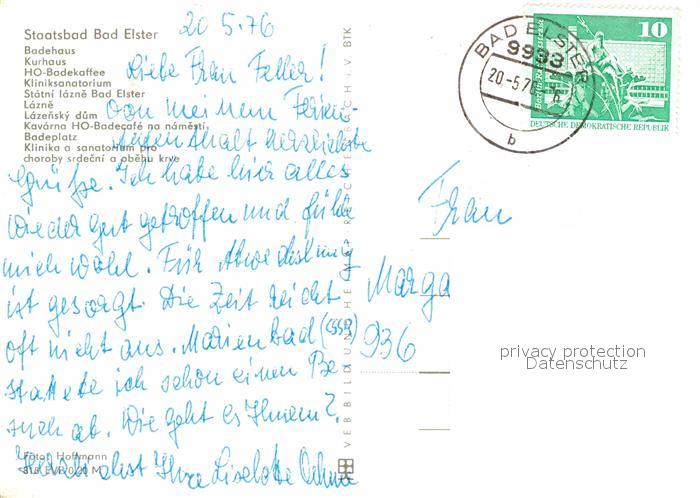 Staatsbad Bad Elster
Badehaus
Kurhaus
HO-Badekaffee
Kliniksanatorium
Státní lázně Bad Elster
Lázně
Lázeňský dům
Kavárna HO-Badecafé na náměstí
Badeplatz
Klinika a sanatorium pro
choroby srdeční a oběhu krve
20 5.76
Liebe Frau Feller!
Von meinem Ferien-
aufenthalt herzlichste
Grüße. Ich habe hier alles
wieder gut getroffen und fühle
mich wohl. Für Abwechslung
ist gesorgt. Die Zeit reicht
oft nicht aus. Marienbad (CSSR)
stattete ich schon einen Be
such ab. Wie geht es Ihnen?
Herzlichst Ihre Liselotte
Foto: Hoffmann
EVP 0,20 M
BAD ELSTER
9933
20-5.76
b
10
DEUTSCHE DEMOKRATISCHE REPUBLIK
Frau
Marga
936
privacy protection
Datenschutz